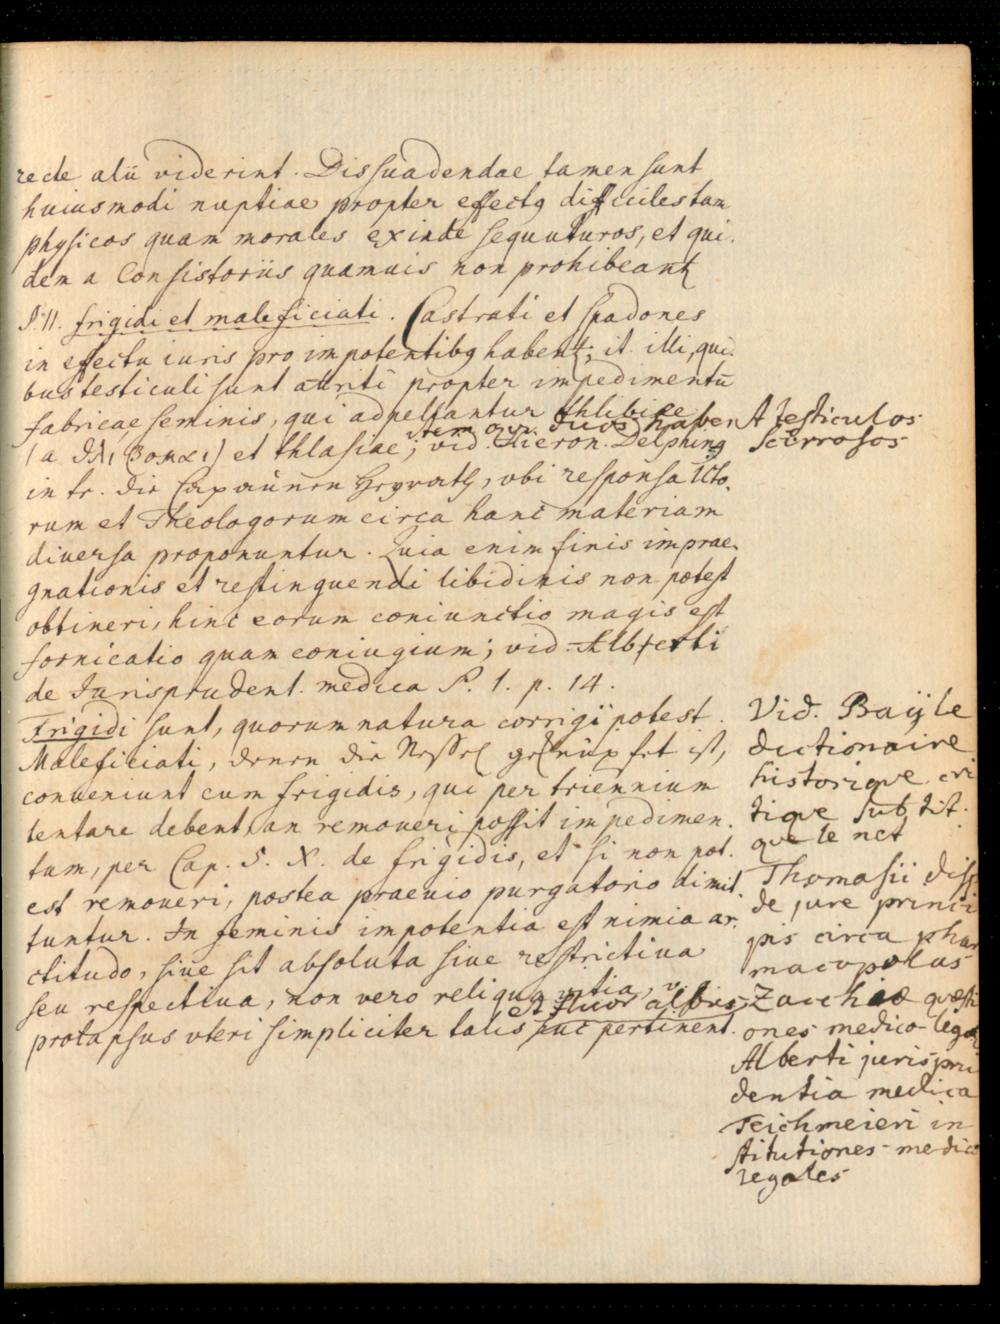 recte alii viderint. Dissuadendae tamen sunt
huiusmodi nuptiae propter effectq difficiles tam
physicos quam morales exinde sequuturos, et qui.
dem a Consistoriis quamuis non prohibeant
§. 11. frigidi et maleficiati. Castrati et spadones
in effectu iuris pro impotentibq habent; it. illi, qui.
bus testiculi sunt attriti propter impedimentū
fabricae seminis, qui adpellantur thlibiae
item qui duos habent testiculos
scirrosos
et thlasiae, vid. Hieron. Delphinq
in tr. die Capaünen Heyrath, vbi responsa ICto.
rum et Theologorum circa hanc materiam
diuersa proponuntur. Quia enim finis imprae.
gnationis et restinguendi libidinis non potest
obtineri, hinc eorum coniunctio magis est
fornicatio quam coniugium; vid. Alberti
de Jurisprudent. medica P. 1. p. 14.
Frigidi sunt, quorum natura corrigi potest.
Maleficiati, denen die Nestel geknüpfet ist,
conueniunt cum frigidis, qui per triennium
tentare debent, an remoueri possit impedimen.
tum, per Cap. 5. X. de frigidis, et si non pot.
est remoueri, postea praeuio purgatorio dimit.
tuntur. In feminis impotentia est nimia ar.
ctitudo, siue sit absoluta siue restrictiua
seu respectiua, non vero reliqua vitia, v.
et fluor albus
prolapsus vteri simpliciter talis huc pertinent.
Vid. Baÿle
dictionaire
historique cri
tique sub tit.
Thomasii diss
de jure princi
pis circa phar
macopolas
Zacchae quaesti
ones medico-legal
Alberti jurispru
dentia medica
Teichmeieri in
stitutiones medico
legales